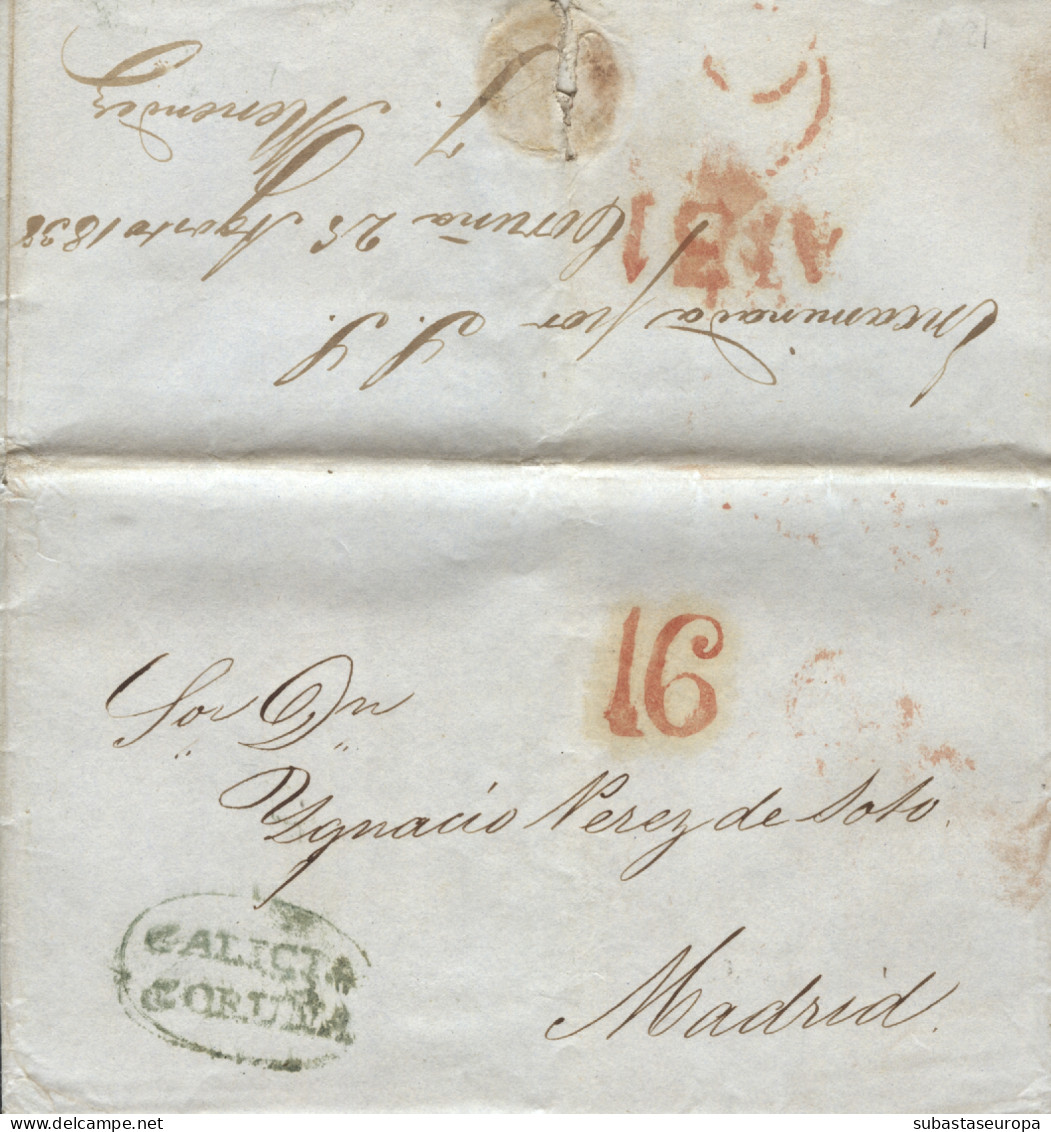 Encaminada por
S. S.
Coruña 25 Agosto 1838
J. Menendez
16
Sor Dn
Ygnacio Perez de Soto.
GALICIA
CORUÑA
Madrid.
subastaseuropa